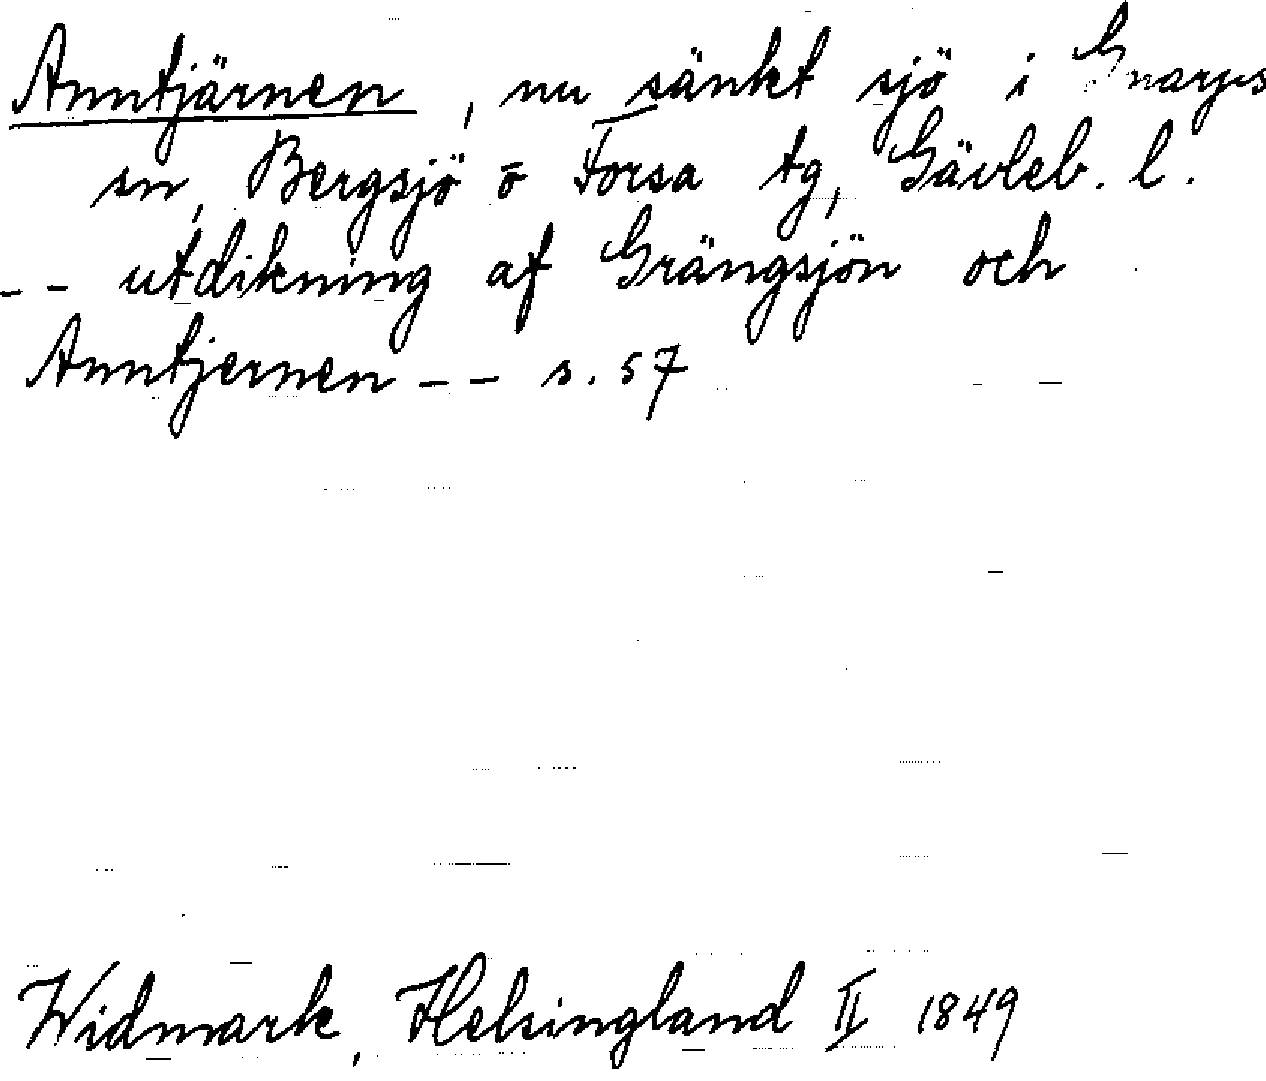 Anntjärnen, nu sänkt sjö i Gnarps
sn, Bergsjö o Forsa tg, Gävleb. l.
-- utdikning af Grängsjön och
Anntjernen -- s. 57
Widmark, Helsingland II 1849